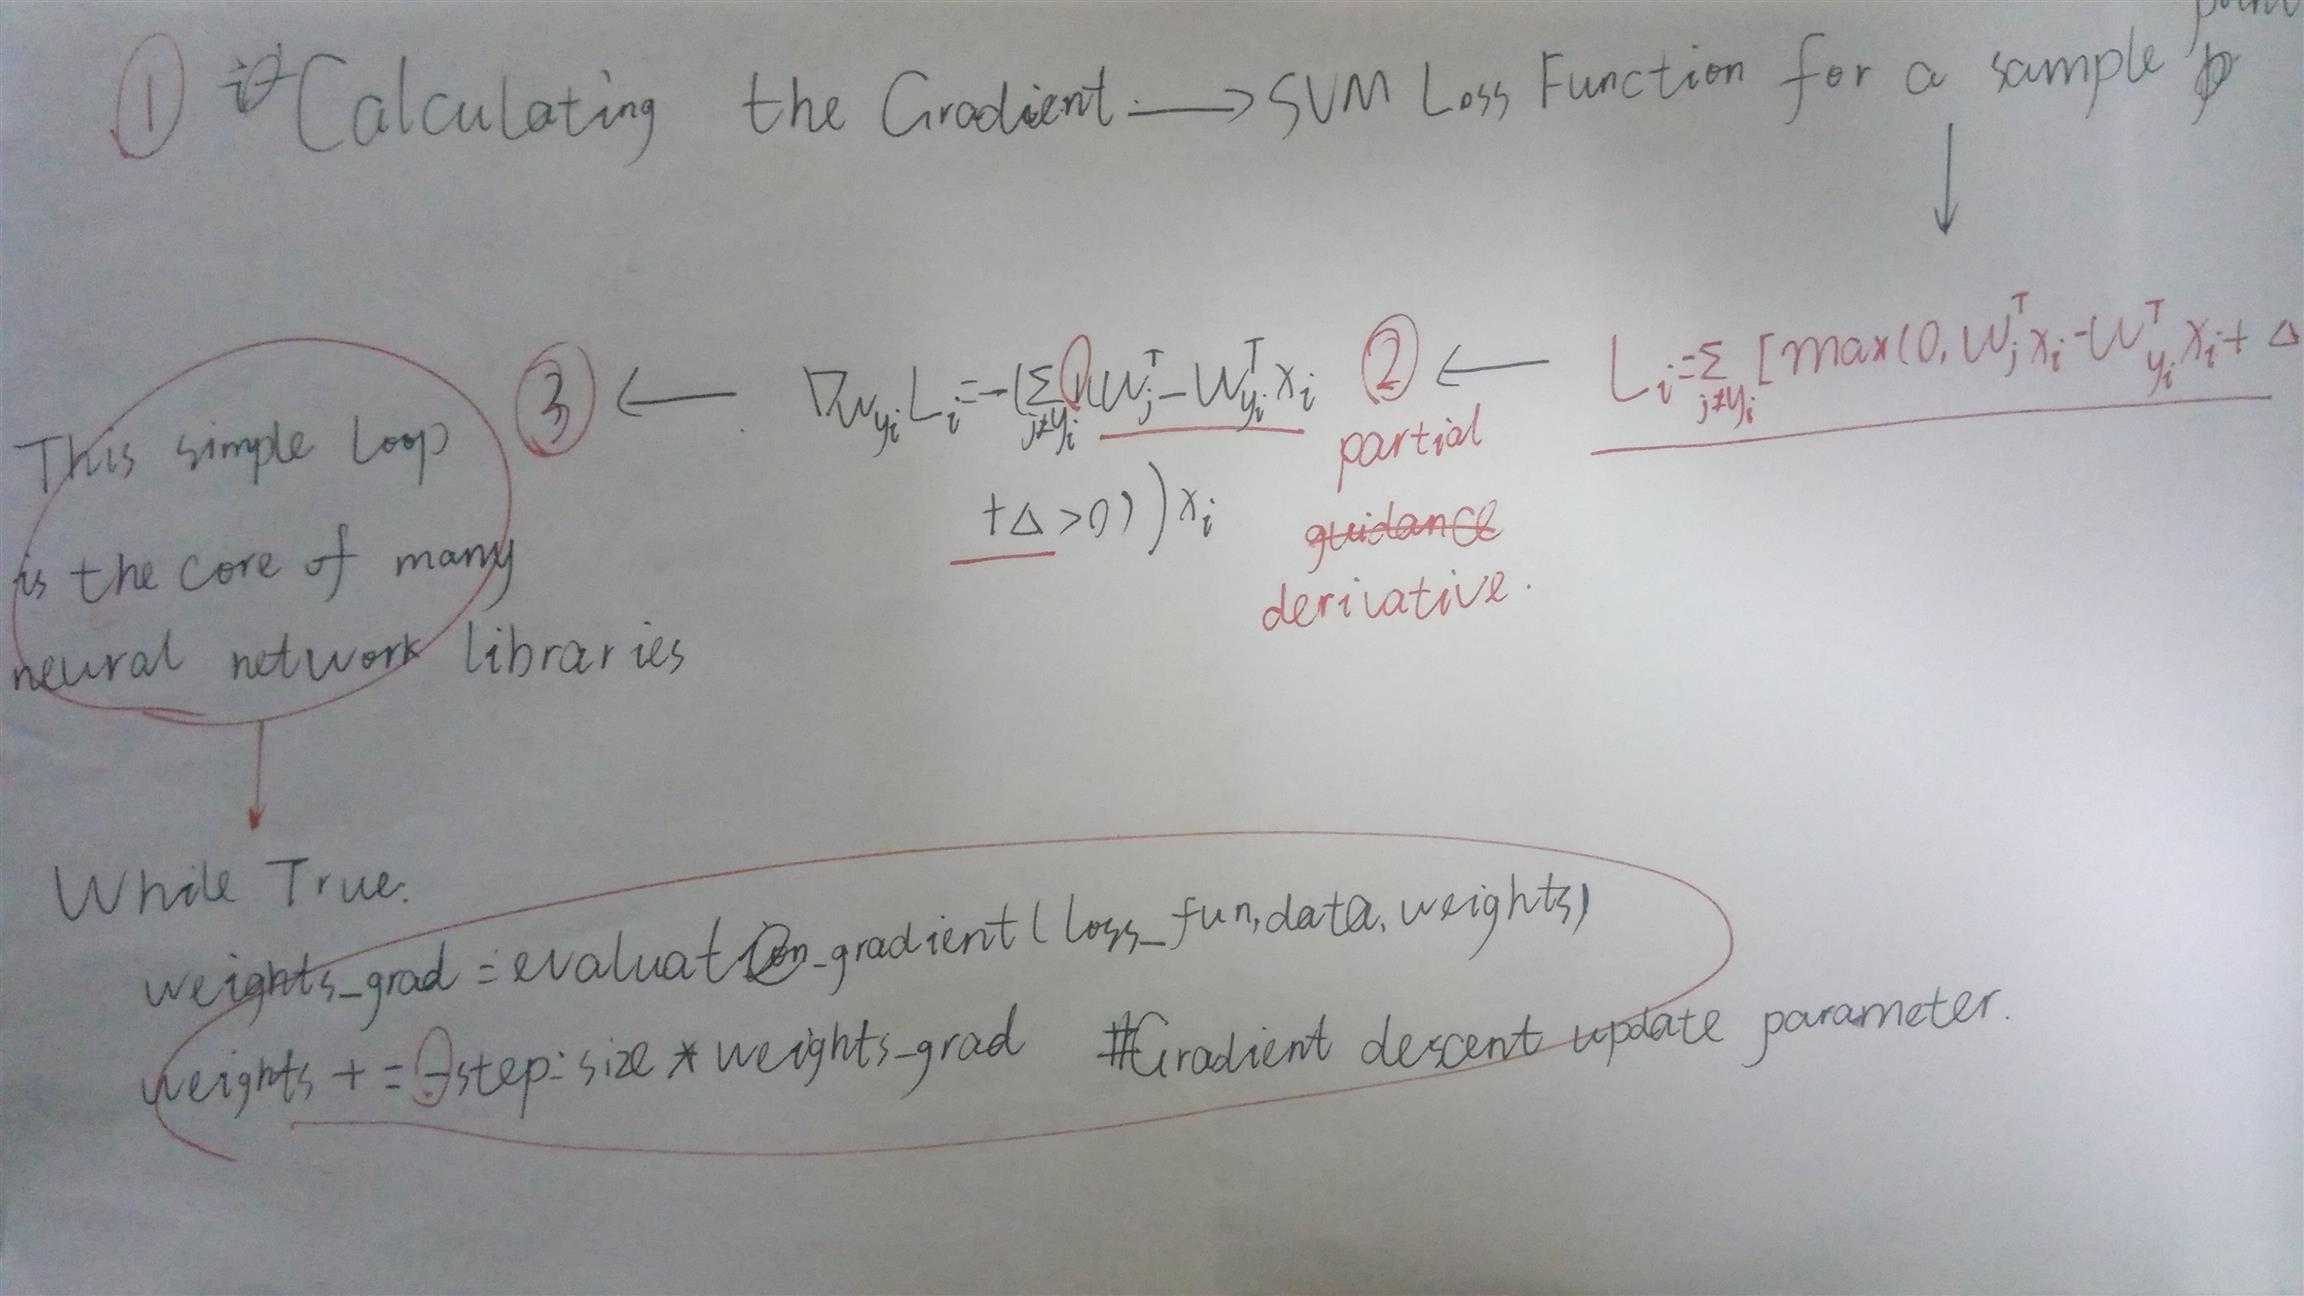 ① Calculating the Gradient ⟶ SVM Loss Function for a sample
L_i=Σ_{j≠y_i}[max(0, W_j^T x_i - W_{y_i}^T x_i + Δ
② ←
partial
guidance
derivative.
∇_{W_{y_i}} L_i = -(Σ_{j≠y_i} 1(W_j^T - W_{y_i}^T x_i
+Δ>0))x_i
③ ←
This simple loop
is the core of many
neural network libraries
While True:
weights_grad = evaluation_gradient(loss_fun, data, weights)
weights += -step-size * weights_grad #Gradient descent update parameter.